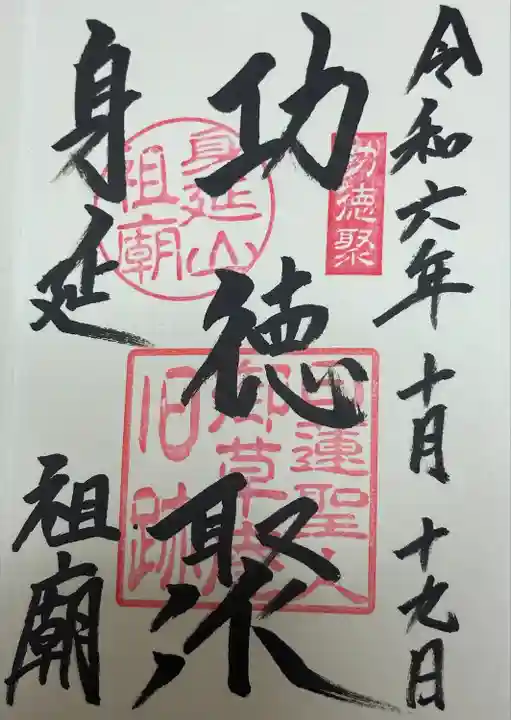 令和六年 十月 十九日
功徳聚
功徳聚
身延山
祖廟
日蓮聖人
御草庵
旧跡
身延 祖廟